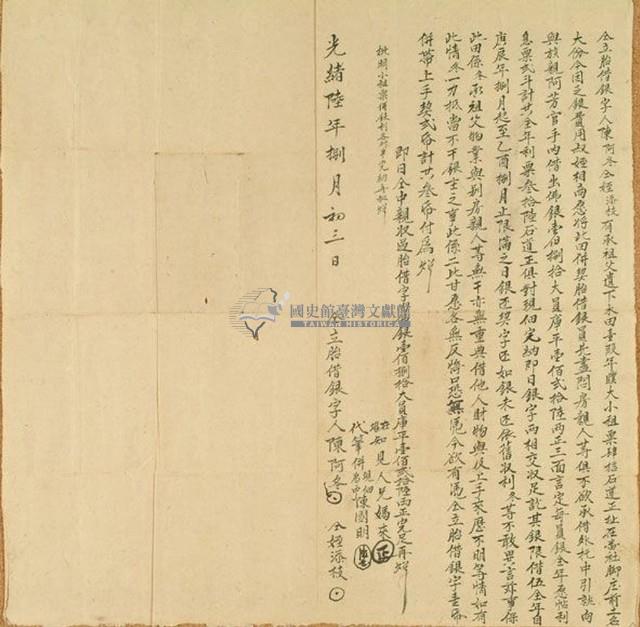 仝立胎借銀字人陳阿冬仝姪添枝有承祖父遺下水田壹段年贌大小租粟肆拾石道正址在番社腳庄前一宮
大份今因乏銀費用叔姪相商愿將此田併契胎借銀員先盡問房親人等俱不欲承借外托中引就向
與族親阿芳官手內借出佛銀壹佰捌拾大員庫平壹佰貳拾陸兩正三面言定每員銀全年愿帖利
息粟弍斗計共全年利粟叁拾陸石道正俱對現佃完納即日銀字兩相交收足訖其銀限借伍全年自
庚辰年捌月起至乙酉捌月止限滿之日銀還契字還如銀未還依舊收利冬等不敢異言詐事保
此田係冬承祖父物業與別房親人等無干亦無重典借他人財物與及上手來歷不明等情如有
此情冬一力抵當不干銀主之事此係二比甘愿各無反悔口恐無憑今欲有憑仝立胎借銀字壹帋
併帶上手契弍帋計共叁帋付為炤
即日仝中親收過胎借字內佛銀壹佰捌拾大員庫平壹佰貳拾陸兩正完足再炤
批明小租粟併銀利各對半完納再批炤
在場知見人兄媽來 正
代筆併為中現佃陳國明
光緒陸年捌月初三日
仝立胎借銀字人陳阿冬 仝姪添枝
國史館臺灣文獻館
TAIWAN HISTORICA